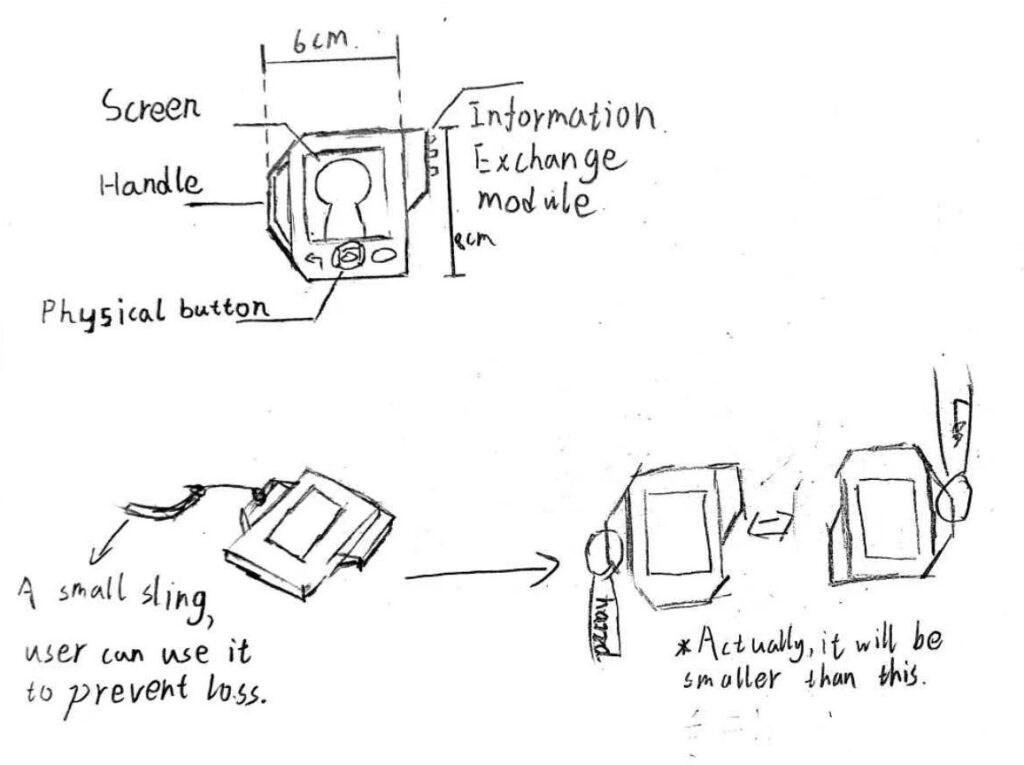 6cm.
Screen
Information
Exchange
module.
Handle
8cm
Physical button
A small sling,
user can use it
to prevent loss.
*Actually, it will be
smaller than this.